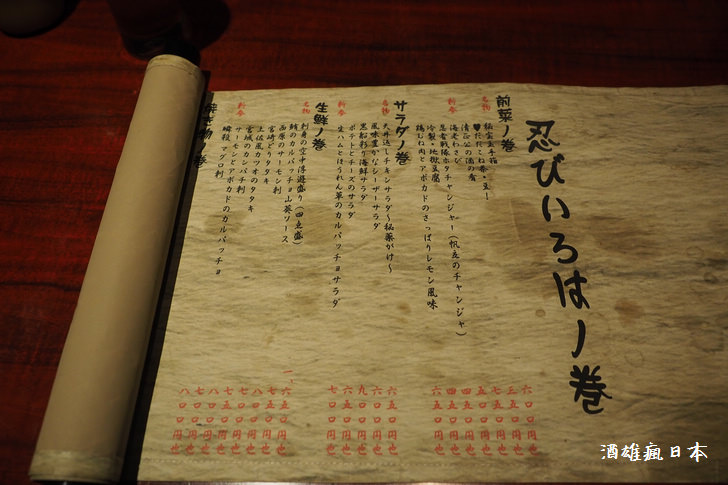 忍びいろはノ巻
前菜ノ巻
名物 秘宝玉手箱
清正公の酒の肴
海老わさび
忍者戦隊ホタチャンジャー(帆立のチャンジャ)
冷製・地獄豆腐
鶏むね肉とアボカドのさっぱりレモン風味
六〇〇円也
三五〇円也
五〇〇円也
四五〇円也
四五〇円也
六五〇円也
サラダノ巻
名物 天井返しチキンサラダ〜秘薬がけ〜
風味豊かなシーザーサラダ
黒船彩り海鮮サラダ
ポテトとチーズのサラダ
新参 生ハムとほうれん草のカルパッチョサラダ
六五〇円也
六〇〇円也
九〇〇円也
六五〇円也
七〇〇円也
生鮮ノ巻
名物 刺身の空中浮遊盛り(四点盛)
鮪のカルパッチョ山葵ソース
西原のサーモン刺
宮崎どりタタキ
土佐風カツオのタタキ
宮城のカンパチ刺
新参 サーモンとアボカドのカルパッチョ
瞬殺 マグロ刺
一、六五〇円也
七五〇円也
八〇〇円也
七〇〇円也
七五〇円也
八〇〇円也
七〇〇円也
八〇〇円也
酒雄瘋日本